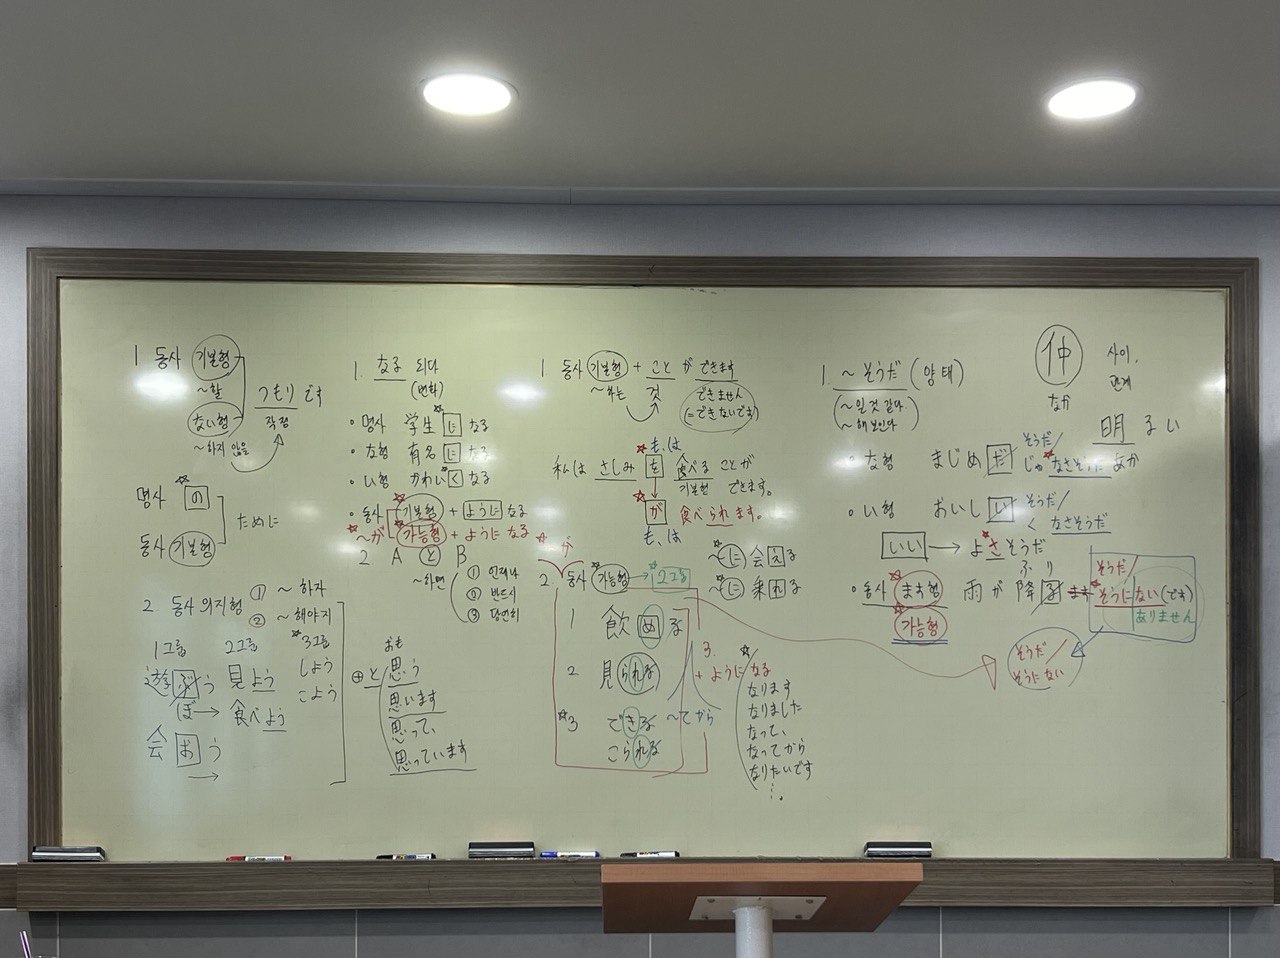 1 동사 기본형
~할
ない형
~하지 않을
つもりです
작정
명사 の
동사 기본형
ために
2 동사 의지형 ① ~하자
② ~해야지
1그룹 2그룹 *3그룹
遊ぶう 見よう しよう
ぼ→ 食べよう こよう
会おう
→
1. なる 되다
(변화)
• 명사 学生になる
• な형 有名になる
• い형 かわいくなる
• 동사 기본형 + ようになる
~が 가능형 + ようになる
2 A と B
~하면 ① 언제나
② 반드시
③ 당연히
おも
⊕ と 思う
思います
思って、
思っています
1 동사 기본형 + こと が できます
~하는 것 できません
(=できないです)
も、は
私は さしみ を 食べる ことが
기본형 できます。
が 食べられます。
も、は
が
2. 동사 가능형 → 2그룹
1 飲める
2 見られる
*3 できる
こられる
~に 会える
~に 乗れる
3.
+ ように なる
なります
なりました
なって、
なってから
なりたいです
~てから
1. ~そうだ (양태)
(~일것 같다.
~해 보인다)
• な형 まじめだ そうだ/
じゃ なさそうだ
• い형 おいしい そうだ/
く なさそうだ
いい → よさそうだ
ふ り
• 동사 ます형 雨が 降る ます
가능형
そうだ/
そうに ない(です)
ありません
そうだ/
そうに ない
仲 사이.
관계
なか
明るい
あか